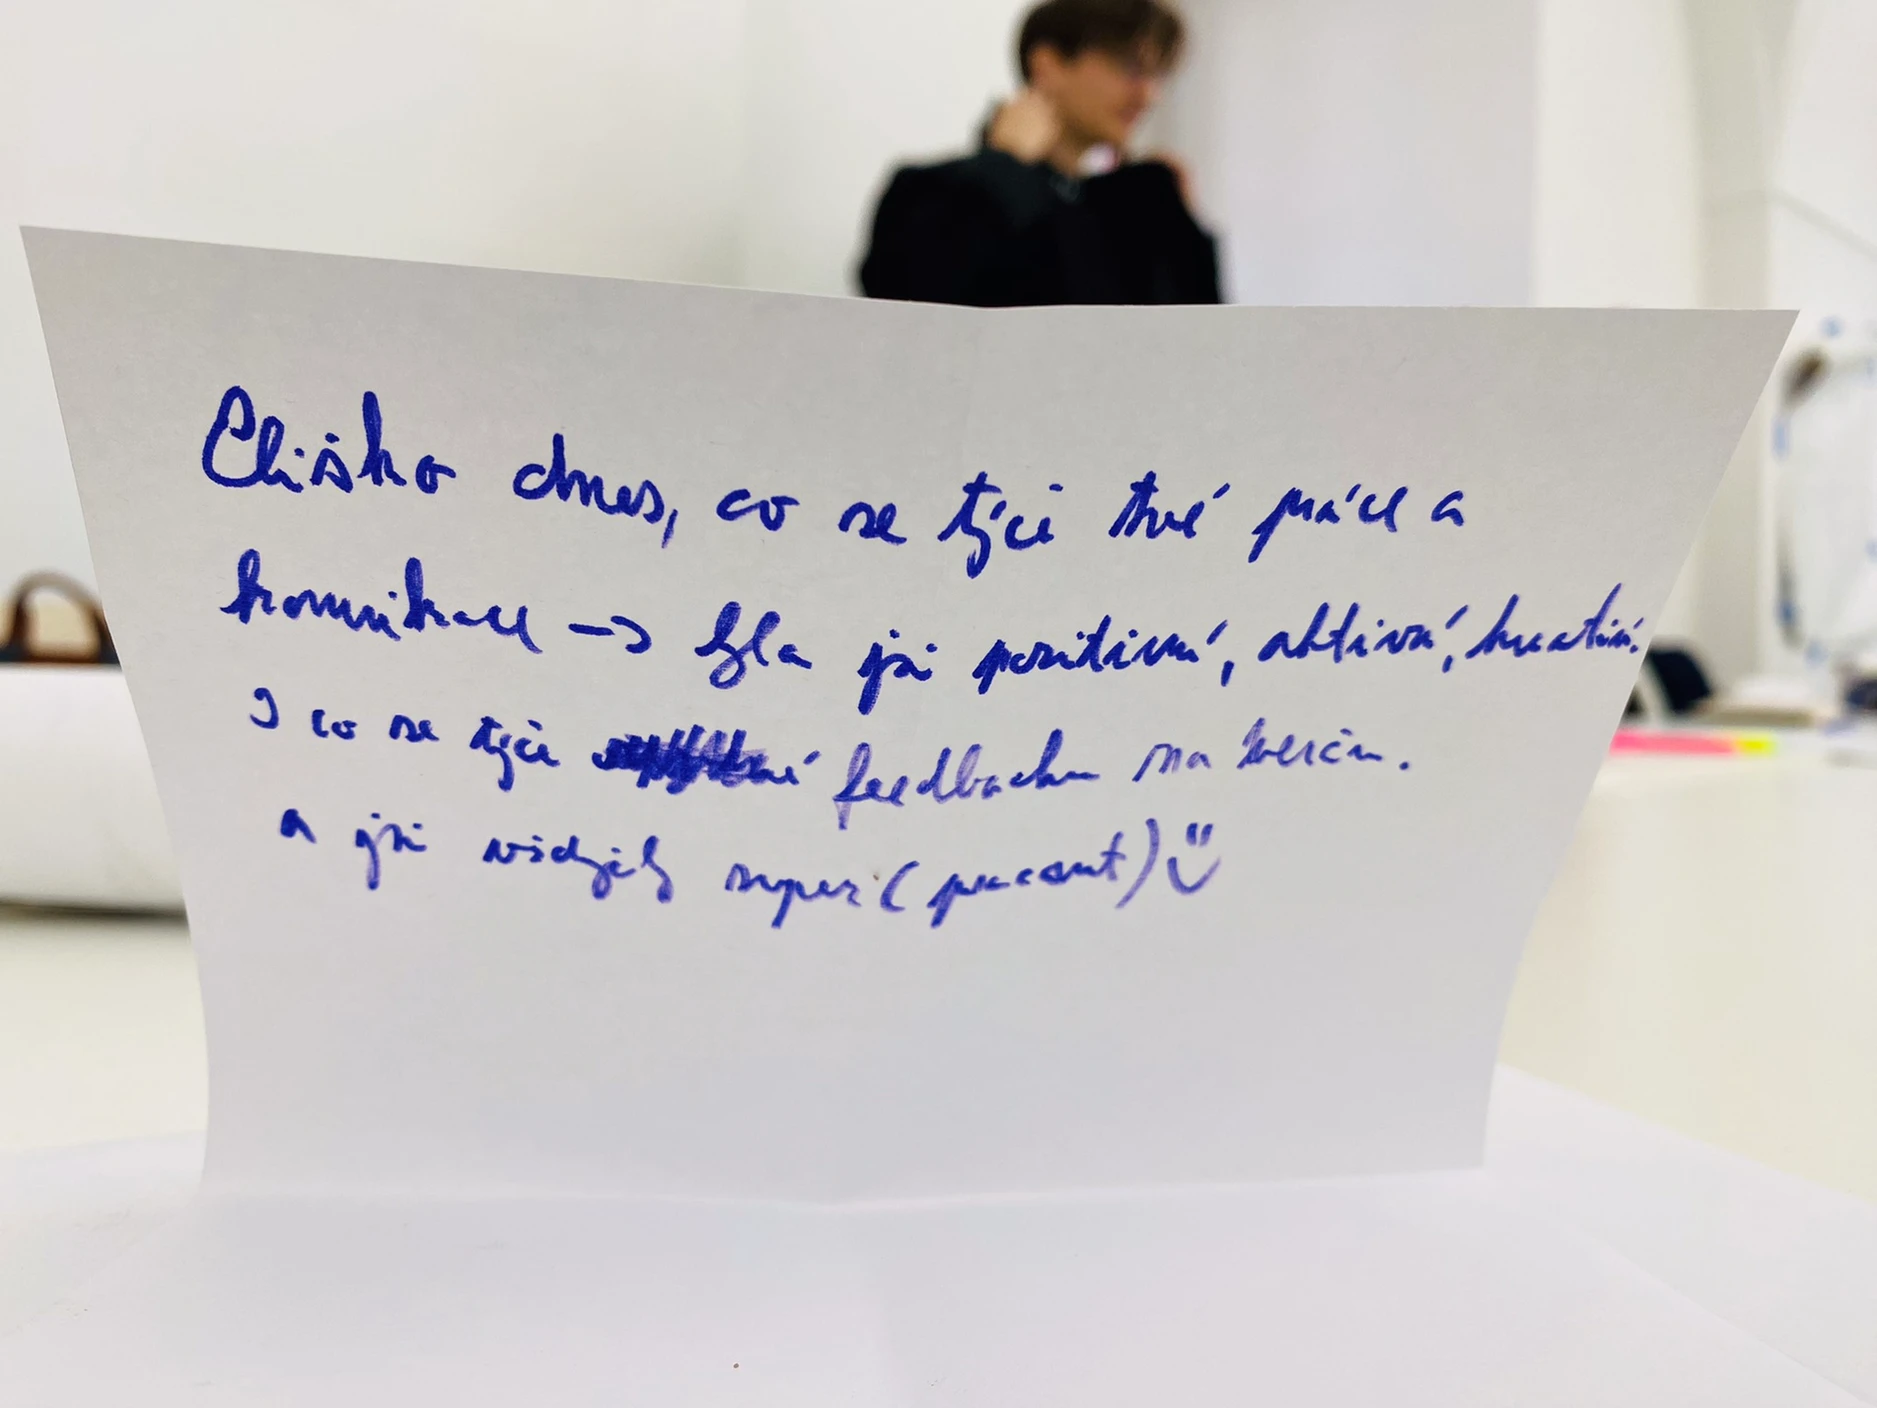 Eliško dnes, co se týče tvé práce a
komunikace -> byla jsi pozitivní, aktivní, kreativní.
I co se týče feedbacku na kolegu.
a jsi vždycky super (prezent) :)